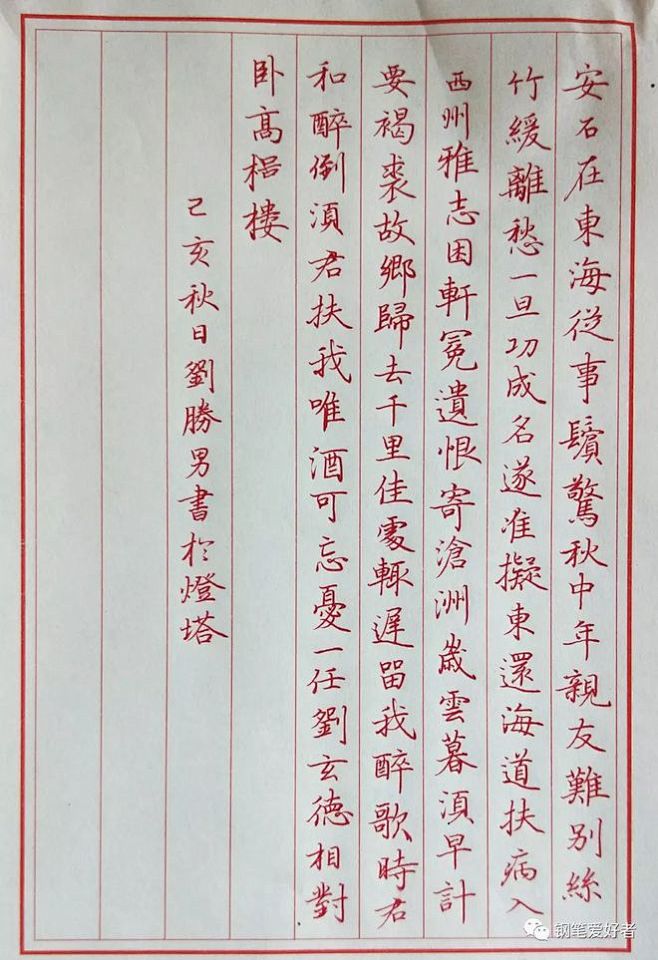 安石在東海從事鬢驚秋中年親友難別絲
竹緩離愁一旦功成名遂准擬東還海道扶病入
西州雅志困軒冕遺恨寄滄洲歲雲暮須早計
要褐裘故鄉歸去千里佳處輒遲留我醉歌時君
和醉倒須君扶我唯酒可忘憂一任劉玄德相對
卧高梠樓
己亥秋日劉勝男書於燈塔
钢笔爱好者